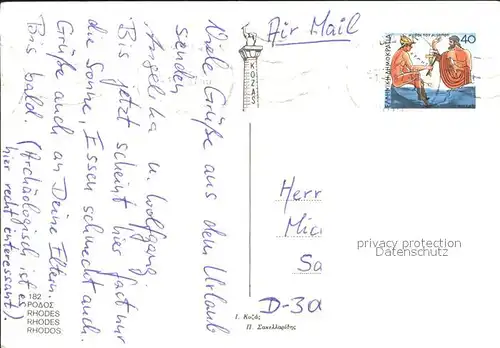 Viele Grüße aus dem Urlaub
senden
Angelika u. Wolfgang.
Bis jetzt scheint hier fast nur
die Sonne, Essen schmeckt auch.
Grüße auch an Deine Eltern.
Bis bald. (Archäologisch ist es
hier recht interessant!)
182
ΡΟΔΟΣ
RHODES
RHODES
RHODOS
Air Mail
KOZAS
Ι. Κοζάς
Π. Σακελλαρίδης
40
ΕΛΛΗΝΙΚΗ ΔΗΜΟΚΡΑΤΙΑ
Herr
Mic
Sa
D-30
privacy protection
Datenschutz